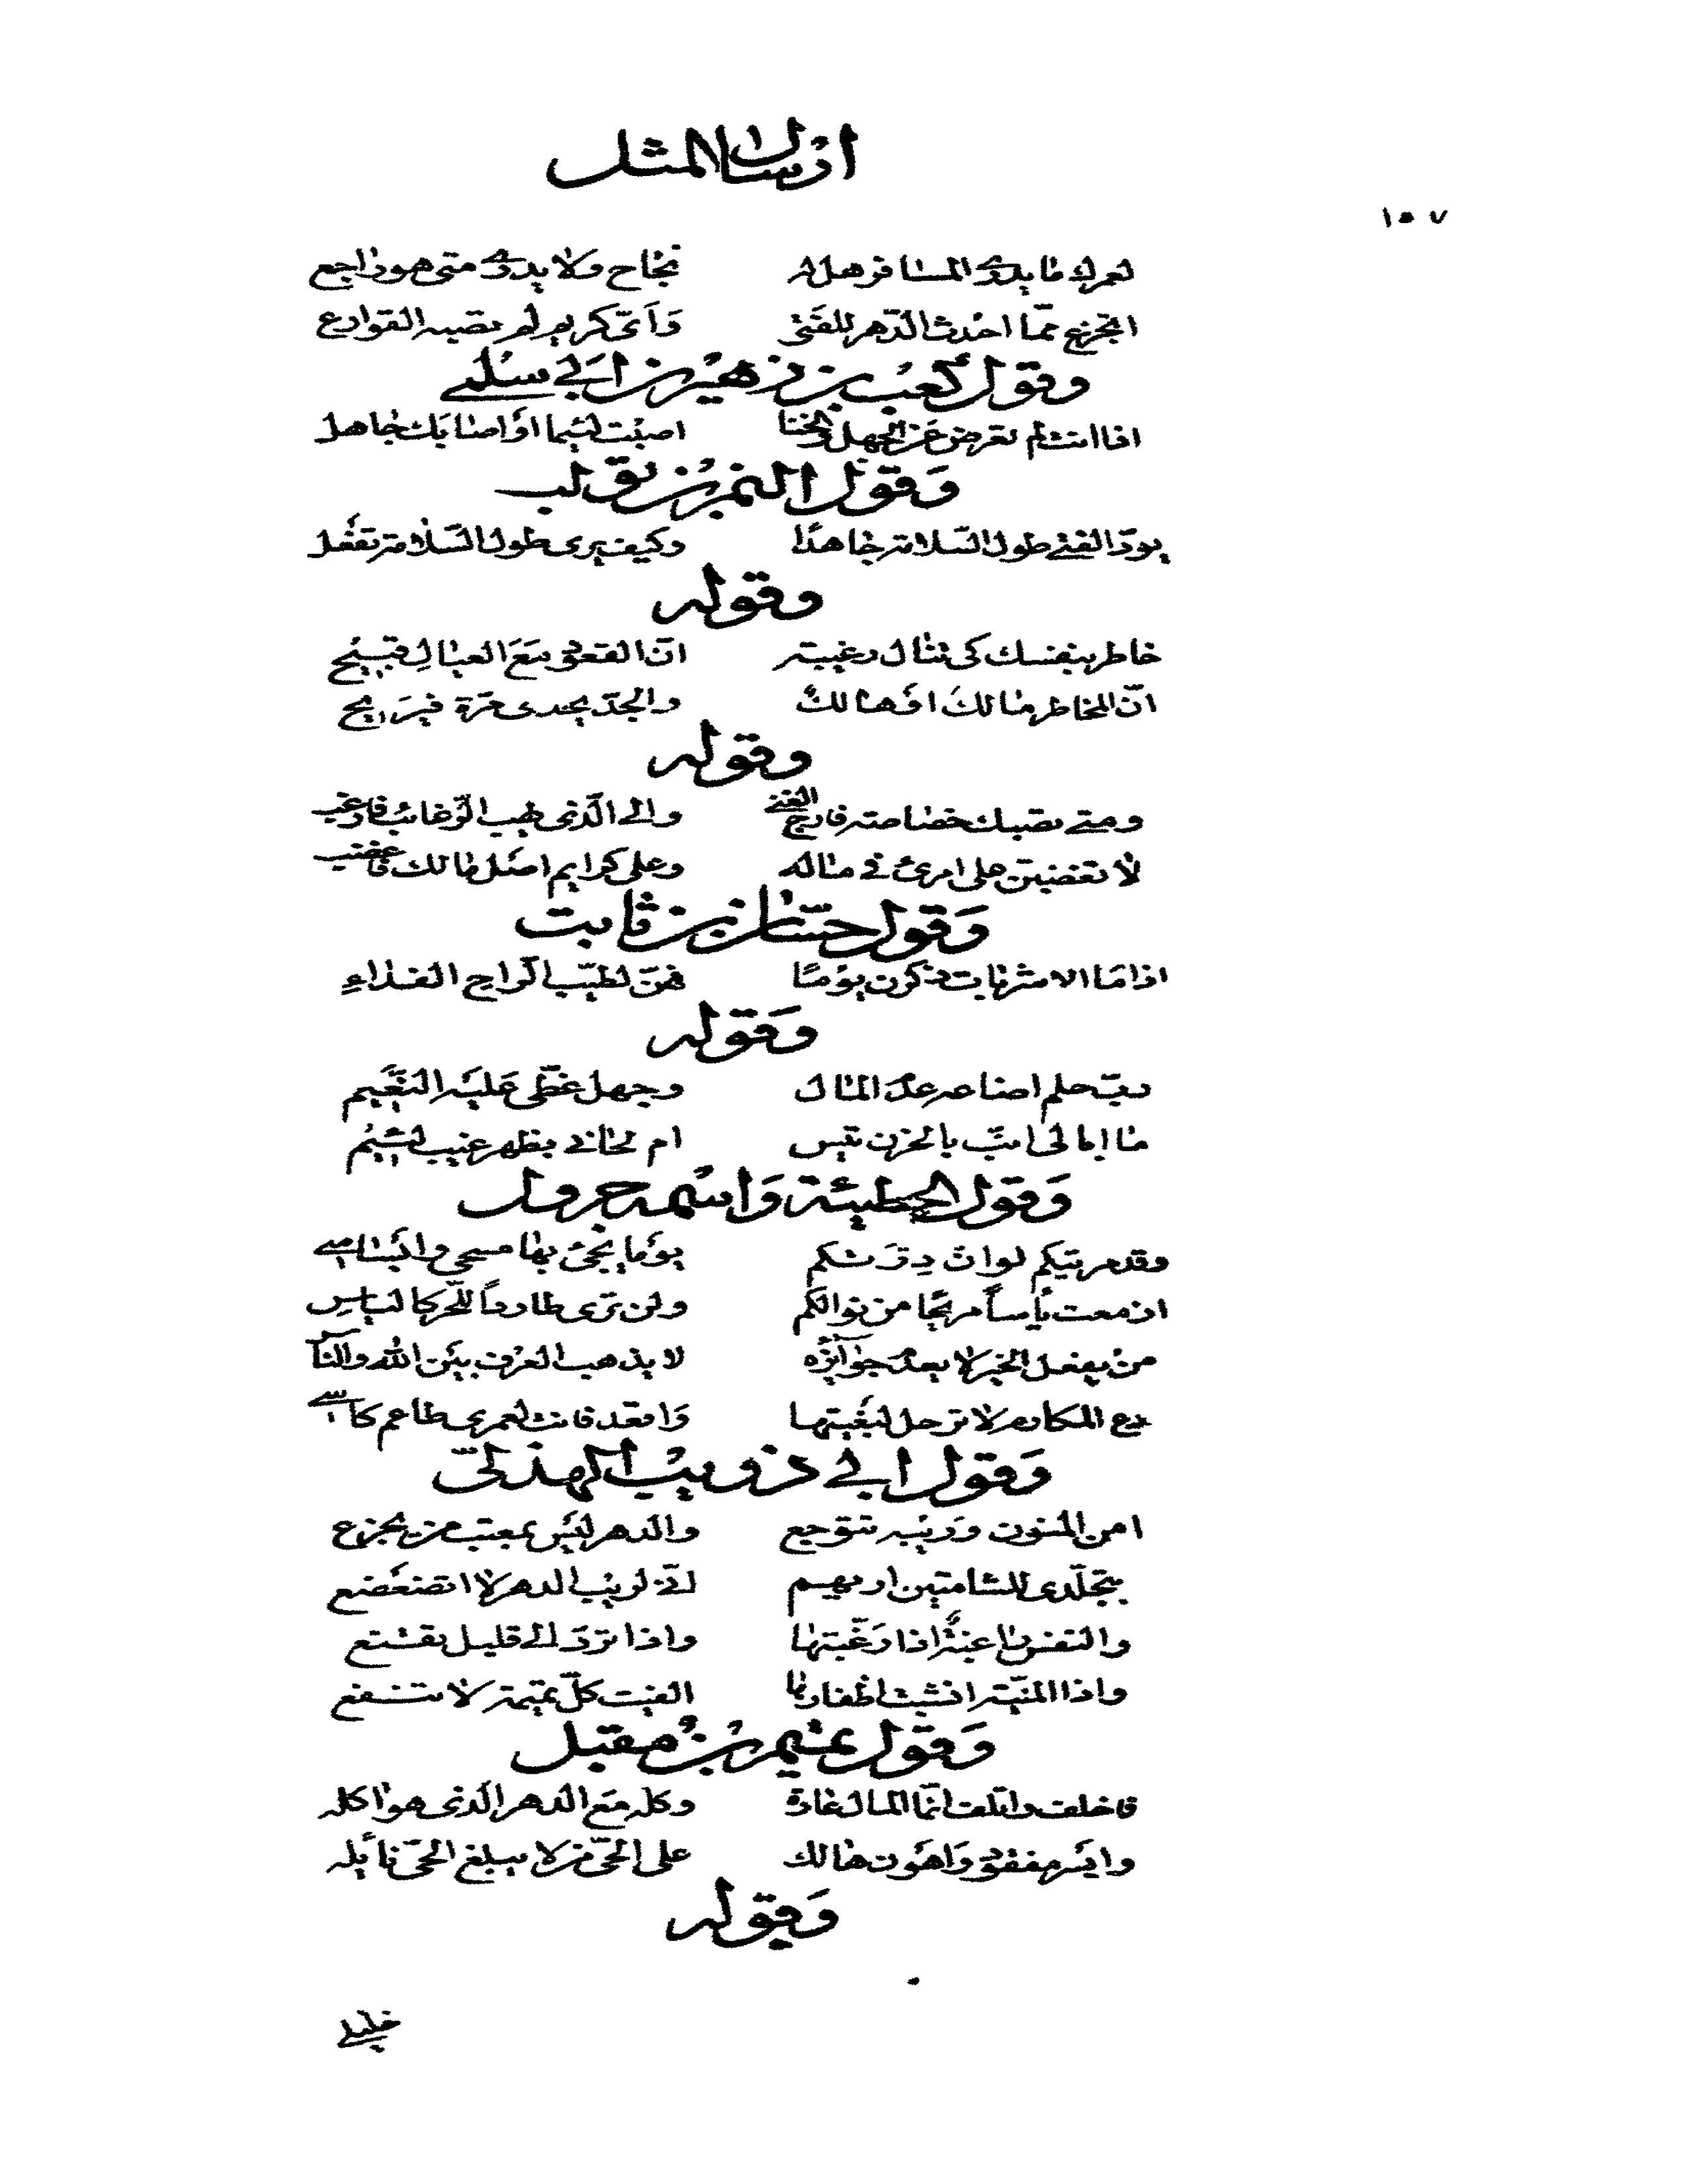 ارسال المثل
١٥٧
لعمرك ما يدرى المسافر هل له نجاح ولا يدرى متى هو راجع
اتجزع ممّا احدث الدّهر للفتى وَاَىّ كريم لم تصبه القوارع
وقول كعب بن زهير بن ابى سلمى
اذا انت لم تعرض عن الجهل والخنا اصبت لئيما اوَ اصابَك جاهل
وَقول النمر بن تولب
يودّ الفتى طول السّلامة جاهدًا وكيف يرى طول السّلامة تفعل
وقوله
خاطر بنفسك كى تنال رغيبة انّ القعود مَعَ العيالِ قبيح
انّ المخاطر مالكَ اوَ هالكٌ والجدّ يجدى مرّة فيرَيح
وقوله
ومتى تصبك خصاصة فارج الغنى والى الّذى يهب الرّغائب فارغب
لا تغضبنّ على امرئ فى ماله وعلى كرايم اصل مالك فاغضب
وَقول حسّان بن ثابت
اذا مَا الاشربات ذكرن يومًا فهنّ لطيّب الراح الفداءِ
وَقوله
ربّ حلم اضاعه عدَم المال وجهل غطّى عَليه النعَيم
ما ابالى انبّ بالحزن تيس ام لحانى بظهر غيب لئيم
وَقول الحطيئة وَاسُمه جرول
وقد مريتكم لو انّ دِرّتَكم يومَا يجئ بها مسحى وابساسى
ازمعت يأساً مريحًا من نوالكم ولن ترى طارداً للحرّ كالياسِ
منْ يفعل الخير لا يعدَم جوَازيَه لا يذهب العرْف بيَن الله والناس
دع المكارم لا ترحل لبغيتها وَاقعد فانت لعمرى طاعم كاسى
وَقول ابى ذويب الهذلىّ
امن المنون وَريبه تتوجع والدهر ليَس بمعتب من يجزع
بتجلّدى للشامتين اريهم انّى لريب الدهر لا اتضعَضع
والنفس راغبةٌ اذا رَغّبتها واذا تردّ الى قليل تقنع
واذا المنيّة انشبت اظفارها الفيت كلّ تميمة لا تنفع
وَقول تميم بن مقبل
فاخلف واتلف انّما المال عارة وكله مَع الدهر الّذى هو اكله
وايسَر مفقود وَاهوَن هالك على الحّى من لا يبلغ الحّى نائله
وَقوله
خليلى